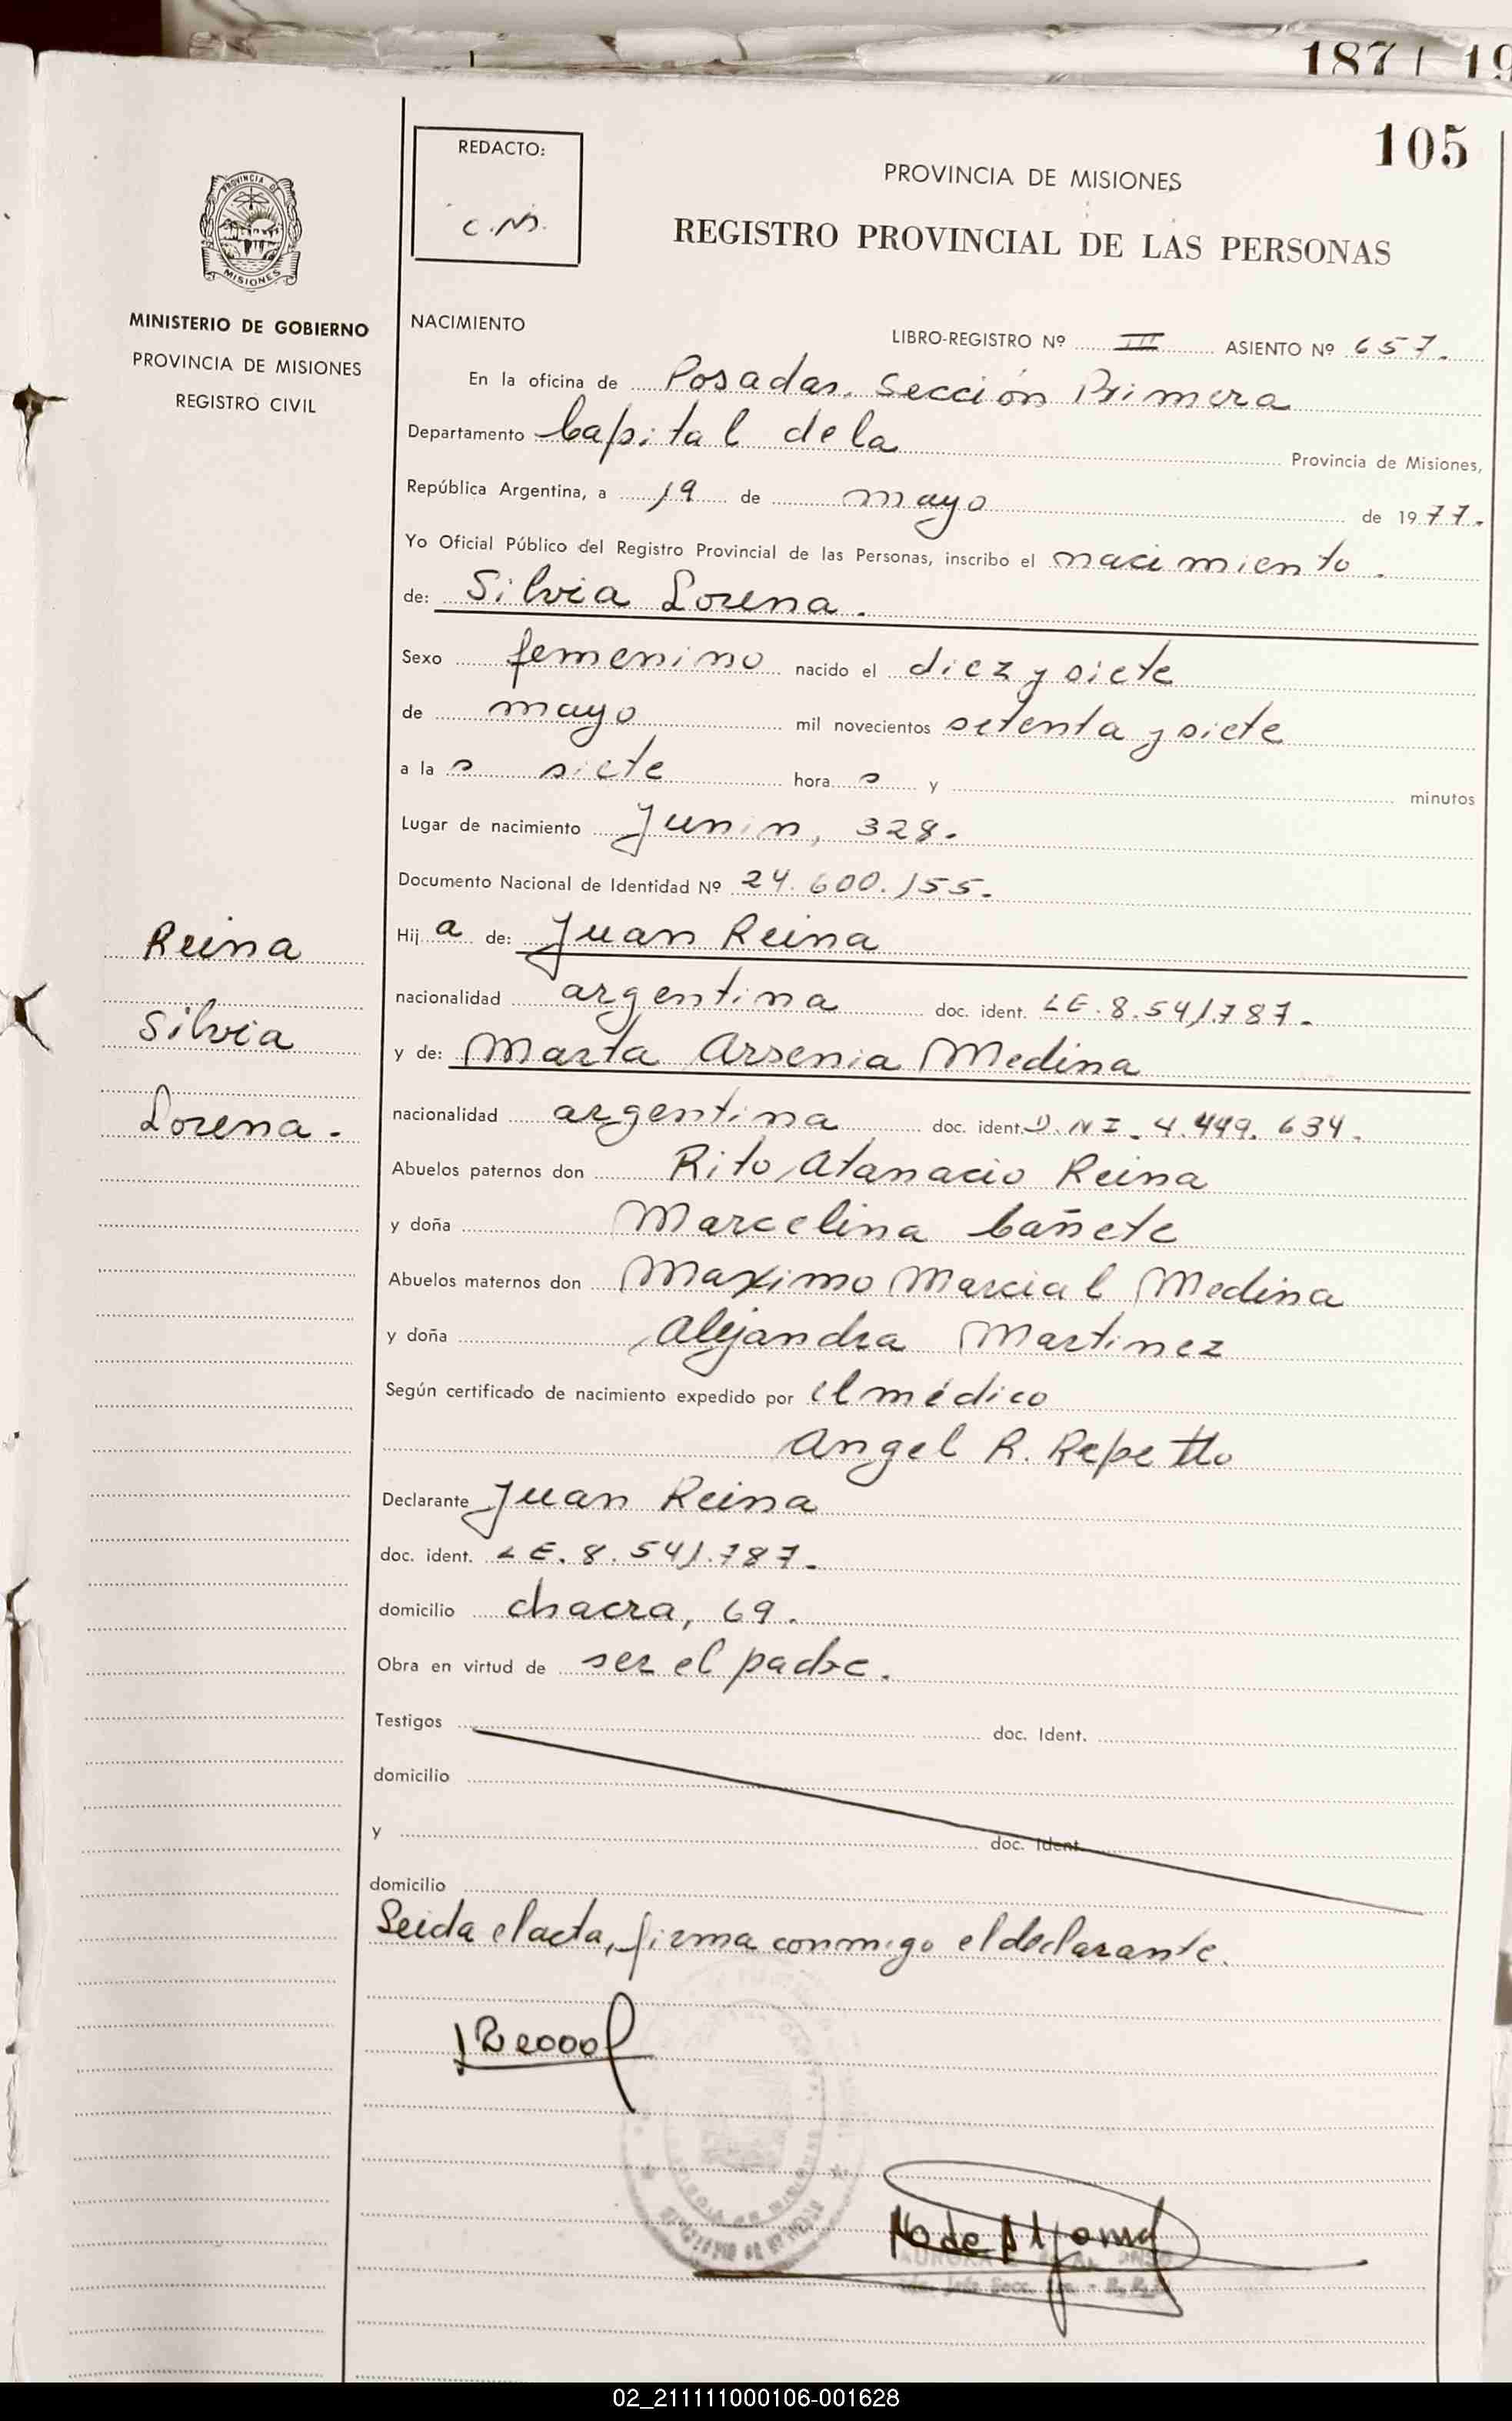 1871 19
105
REDACTO:
C.N.
PROVINCIA DE MISIONES
REGISTRO PROVINCIAL DE LAS PERSONAS
PROVINCIA DE
MISIONES
MINISTERIO DE GOBIERNO
PROVINCIA DE MISIONES
REGISTRO CIVIL
NACIMIENTO
LIBRO-REGISTRO Nº III ASIENTO Nº 657.
En la oficina de Posadas. Sección Primera
Departamento Capital de la Provincia de Misiones,
República Argentina, a 19 de mayo de 1977.
Yo Oficial Público del Registro Provincial de las Personas, inscribo el nacimiento.
de: Silvia Lorena.
Sexo femenino nacido el diez y siete
de mayo mil novecientos setenta y siete
a la s siete hora s y minutos
Lugar de nacimiento Junin, 328.
Documento Nacional de Identidad Nº 24.600.155.
Hij a de: Juan Reina
nacionalidad argentina doc. ident. LE. 8.541.787.
y de: Marta Arsenia Medina
nacionalidad argentina doc. ident. D.N I. 4.449.634.
Abuelos paternos don Rito Atanacio Reina
y doña Marcelina Cañete
Abuelos maternos don Maximo Marcial Medina
y doña Alejandra Martinez
Según certificado de nacimiento expedido por el médico
Angel R. Repetto
Declarante Juan Reina
doc. ident. LE. 8.541.787.
domicilio chacra, 69.
Obra en virtud de ser el padre.
Testigos doc. Ident.
domicilio
y doc. Ident.
domicilio
Leida el acta, firma conmigo el declarante.
Reina
Silvia
Lorena.
02_211111000106-001628